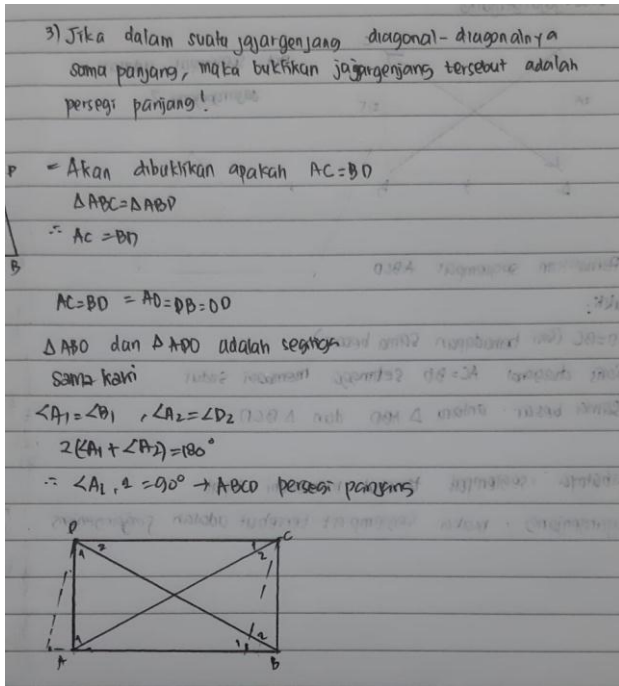 3) Jika dalam suatu jajargenjang diagonal-diagonalnya
sama panjang, maka buktikan jajargenjang tersebut adalah
persegi panjang!
P
= Akan dibuktikan apakah AC=BD
ΔABC=ΔABD
∴ AC =BD
B
AC=BD = AO=DB=OD
ΔABO dan ΔADO adalah segitiga
sama kaki
∠A1=∠B1 , ∠A2=∠D2
2(∠A1+∠A2)=180°
∴ ∠A1,2 =90° → ABCD persegi panjang
D 2 1 C
1 2
1 1 2
A B